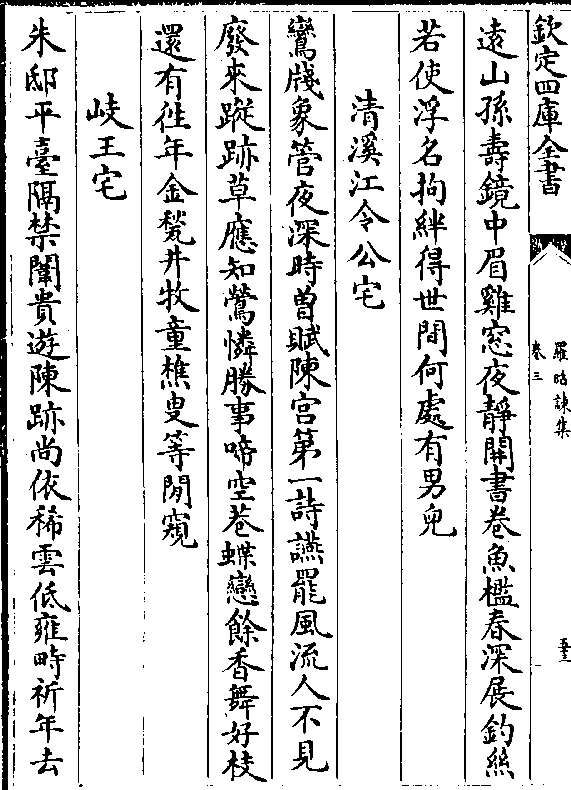 欽定四庫全書
羅昭諫集
卷三
遠山孫壽鏡中眉雞窓夜靜開書卷魚檻春深展釣絲
若使浮名拘絆得世間何處有男兒
清溪江令公宅
鸞牋象管夜深時曾賦陳宫第一詩讌罷風流人不見
廢來蹤跡草應知鶯憐勝事啼空巷蝶戀餘香舞好枝
還有徃年金甃井牧童樵叟等閒窺
岐王宅
朱邸平臺隔禁闈貴遊陳跡尚依稀雲低雍畤祈年去